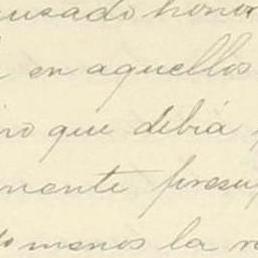 ausado honor
en aquellos
ino que debiá
mente presup
menos la